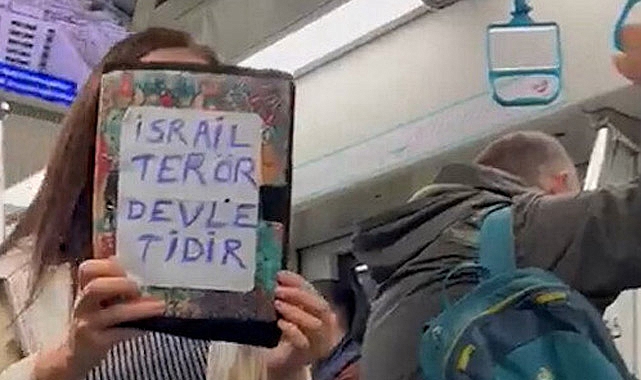 İSRAİL
TERÖR
DEVLE
TİDİR